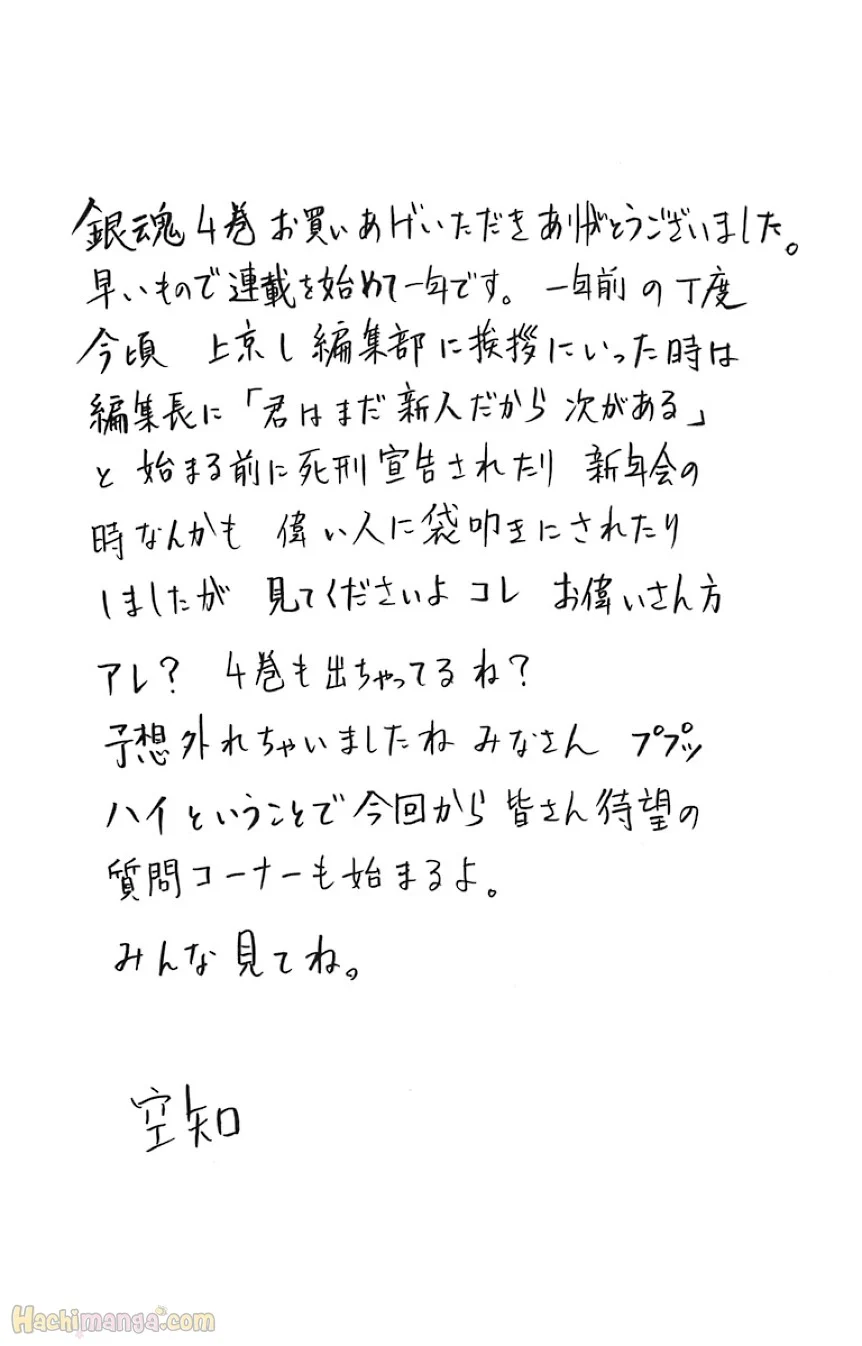 銀魂4巻 お買いあげいただきありがとうございました。
早いもので連載を始めて一年です。 一年前の丁度
今頃 上京し編集部に挨拶にいった時は
編集長に「君はまだ新人だから 次がある」
と 始まる前に死刑宣告されたり 新年会の
時なんかも 偉い人に袋叩きにされたり
しましたが 見てくださいよ コレ お偉いさん方
アレ? 4巻も出ちゃってるね?
予想外れちゃいましたね みなさん ププッ
ハイということで今回から皆さん待望の
質問コーナーも始まるよ。
みんな見てね。
空知
Hachimanga.com